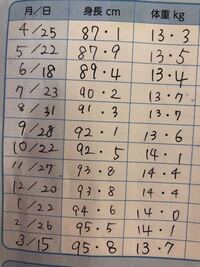 月/日 身長 cm 体重 kg
4/25 87・1 13・3
5/22 87・9 13・5
6/18 89・4 13・4
7/23 90・2 13・7
8/31 91・3 13・7
9/28 92・1 13・6
10/22 92・5 14・1
11/27 93・8 14・4
12/20 93・8 14・4
1/22 94・6 14・0
2/26 95・5 14・1
3/15 95・8 13・7